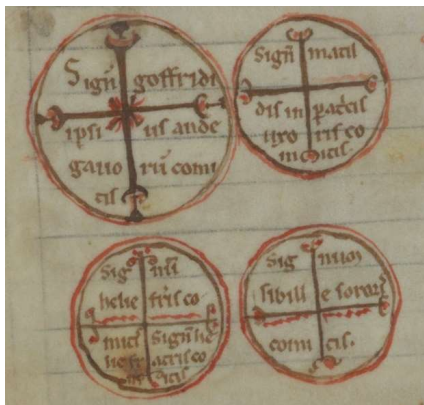 Sign̄ goffridi
ipsi us ande
gauo rū comi
tis
Sign̄ matil
dis
uxo ris co
m itis.
Sig
helie fr̄is co
mitis Sign̄ he
atris co
itis
Sig num
sibill e soror
comi tis.